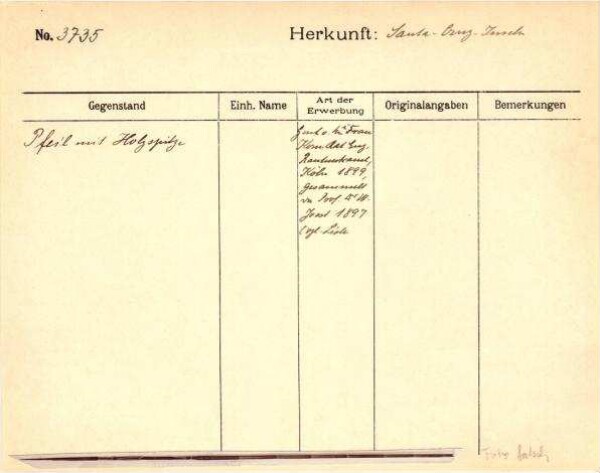 No. 3735
Herkunft: Santa-Cruz-Inseln
Gegenstand
Einh. Name
Art der
Erwerbung
Originalangaben
Bemerkungen
Pfeil mit Holzspitze
Frau
Rautenstrauch,
Köln 1899,
gesammelt
Prof. Dr. W.
Joest 1897
Liste
Foto